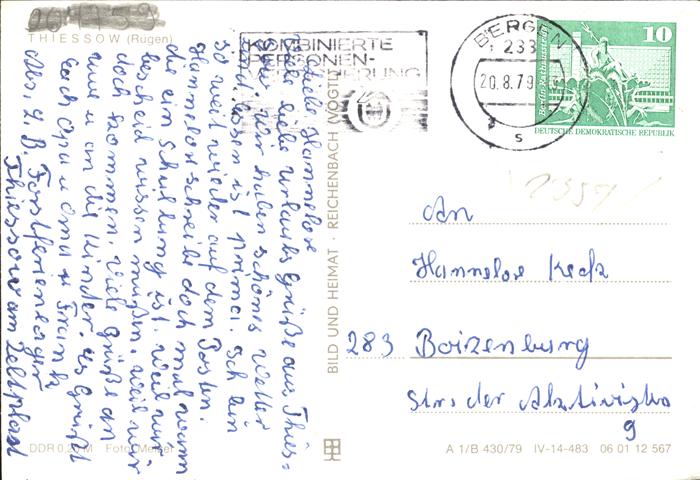 THIESSOW (Rügen)
KOMBINIERTE
PERSONEN-
BERGEN
233
20.8.79
s
10
DEUTSCHE DEMOKRATISCHE REPUBLIK
Liebe Hannelore
Viele liebe Urlaubs Grüße aus Thies-
sow. Wir haben schönes Wetter
und Essen ist prima. Ich bin
so weit wieder auf dem Posten.
Hannelore schreibe doch mal wann
die ein Schulung ist. Weil wir
bescheid wissen müßen. Weil wir
doch kommen. Viele Grüße an
u an die Kinder. Es Grüßt
Euch Opa u Oma u Frank
Abs. Z. B. Forstferienlager
Thiessow am Zeltplatz
BILD UND HEIMAT · REICHENBACH (VOGTL)
An
Hannelore Keck
283 Boizenburg
Strs der Aktivisten
9
DDR 0,20 M Foto:
A 1/B 430/79 IV-14-483 06 01 12 567